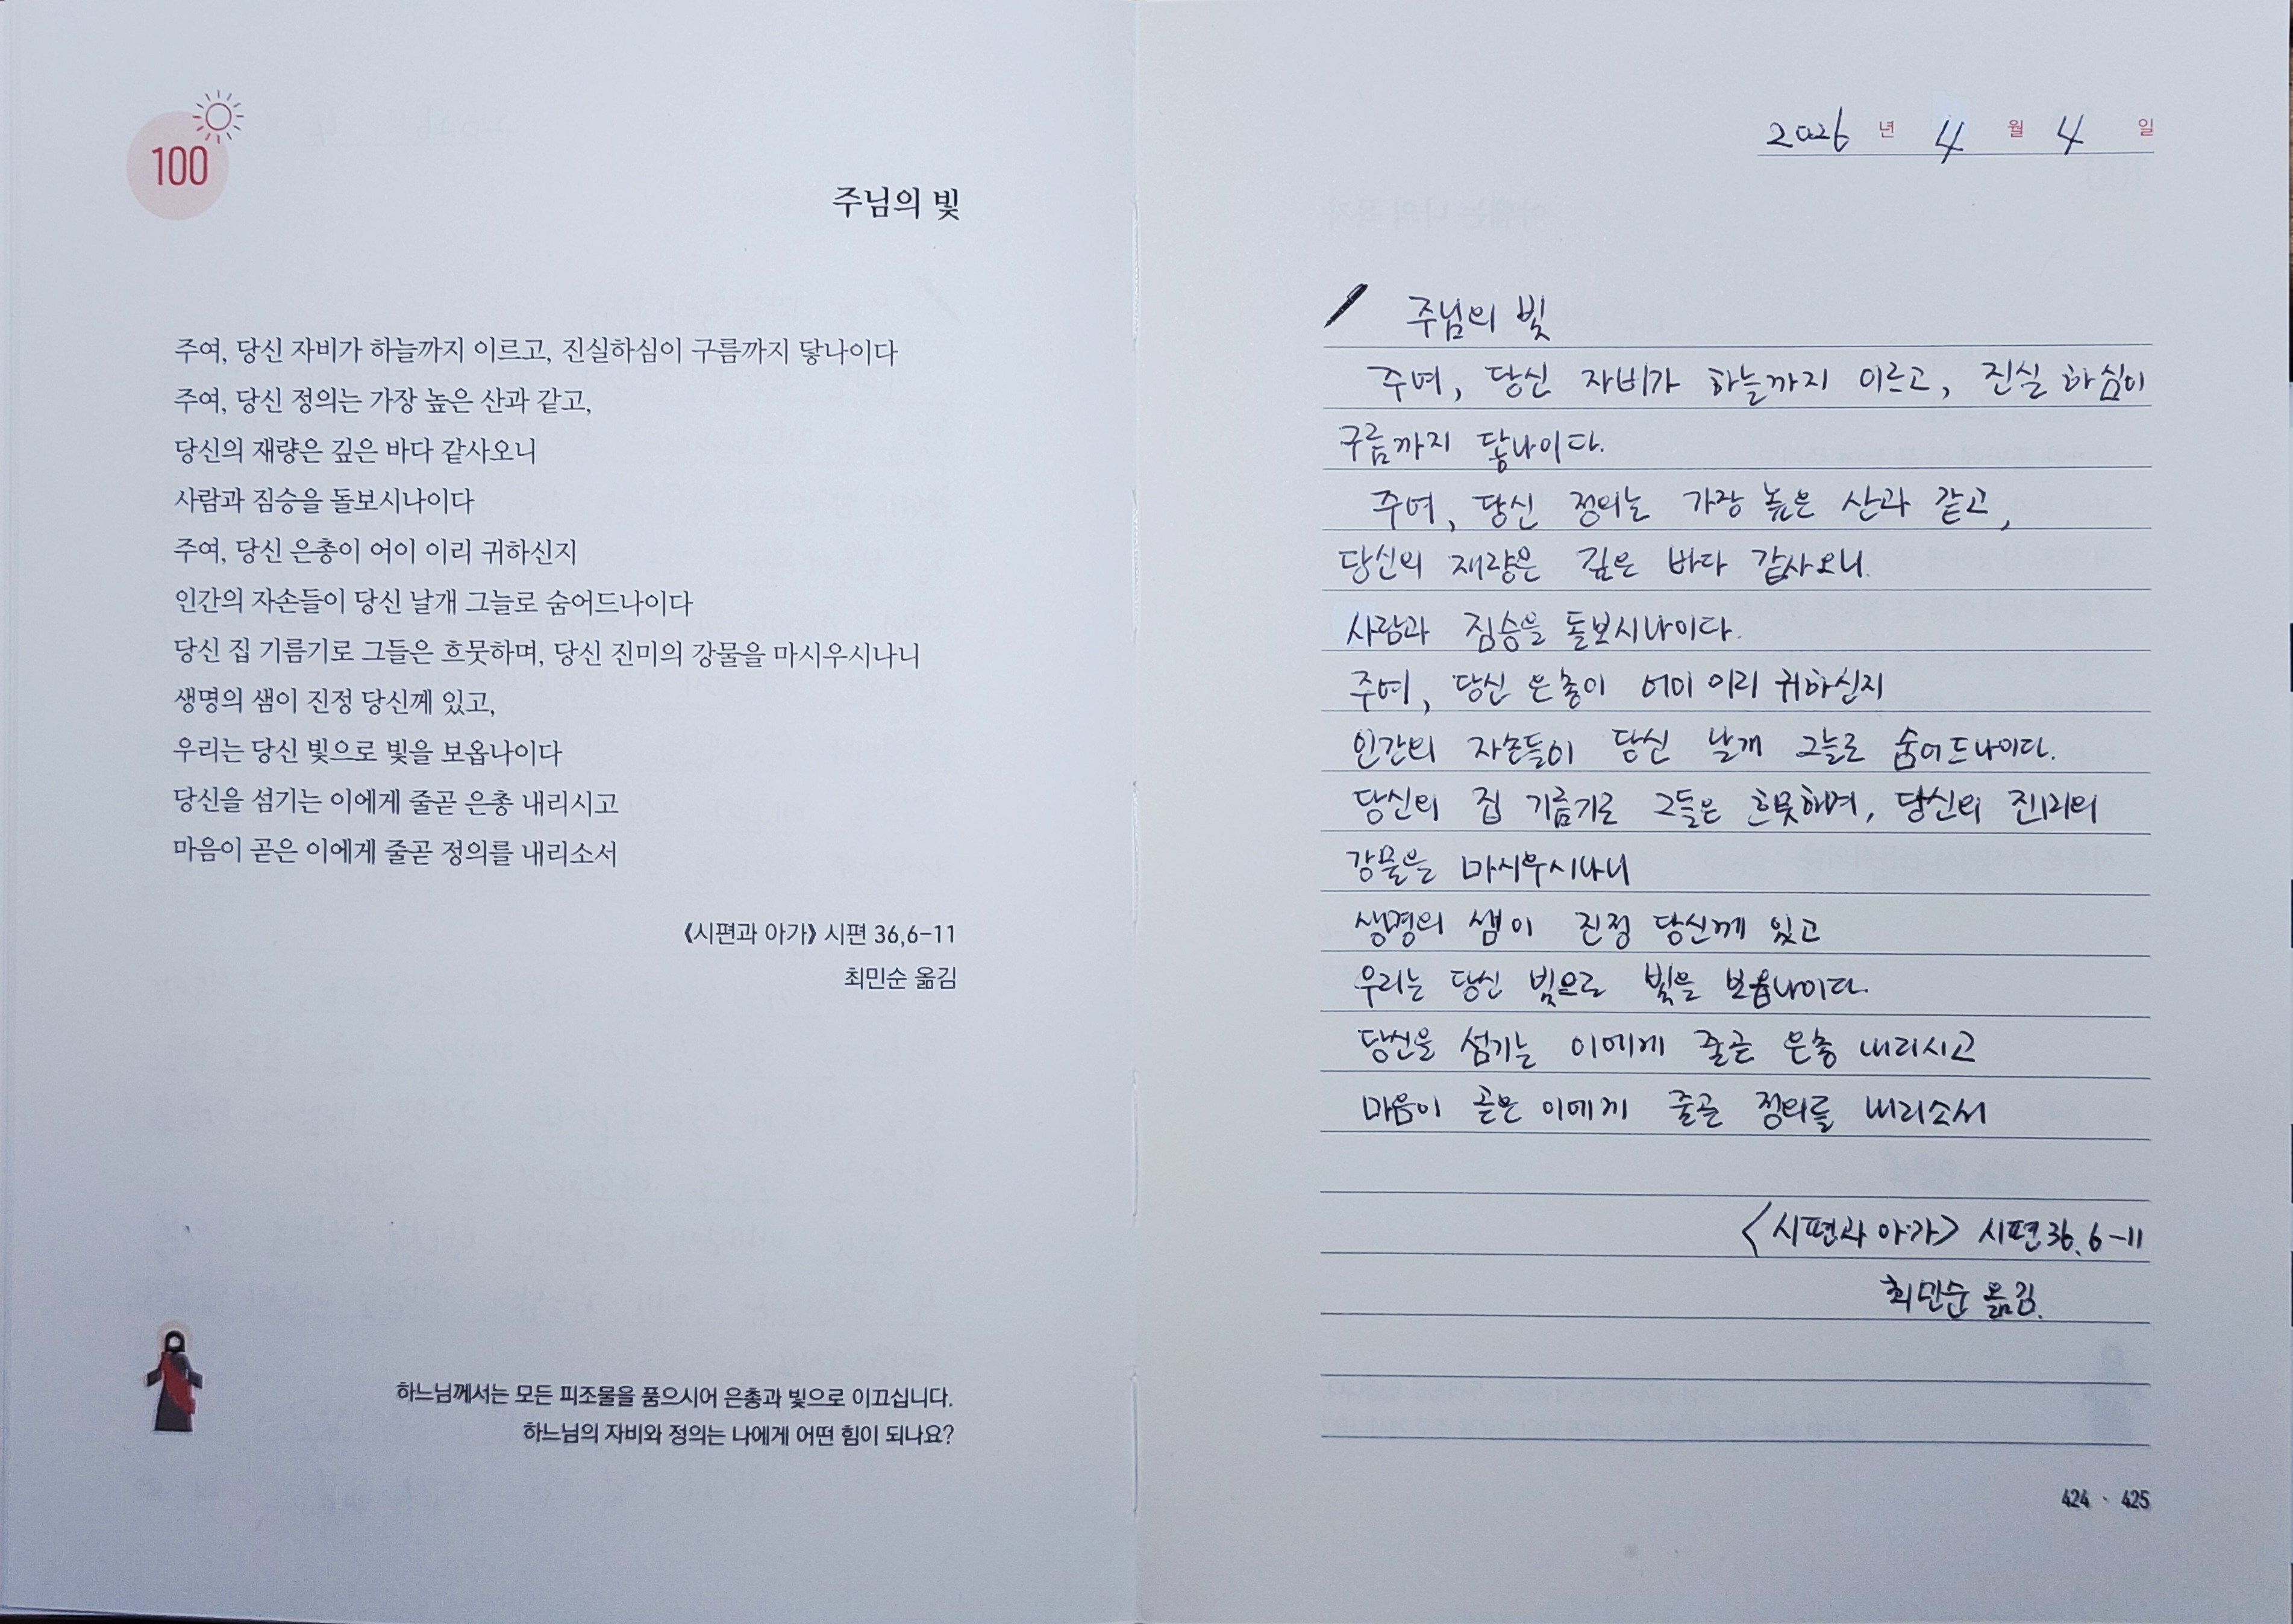 100
주님의 빛
주여, 당신 자비가 하늘까지 이르고, 진실하심이 구름까지 닿나이다
주여, 당신 정의는 가장 높은 산과 같고,
당신의 재량은 깊은 바다 같사오니
사람과 짐승을 돌보시나이다
주여, 당신 은총이 어이 이리 귀하신지
인간의 자손들이 당신 날개 그늘로 숨어드나이다
당신 집 기름기로 그들은 흐뭇하며, 당신 진미의 강물을 마시우시나니
생명의 샘이 진정 당신께 있고,
우리는 당신 빛으로 빛을 보옵나이다
당신을 섬기는 이에게 줄곧 은총 내리시고
마음이 곧은 이에게 줄곧 정의를 내리소서
《시편과 아가》 시편 36,6-11
최민순 옮김
하느님께서는 모든 피조물을 품으시어 은총과 빛으로 이끄십니다.
하느님의 자비와 정의는 나에게 어떤 힘이 되나요?
2026 년 4 월 4 일
주님의 빛
주여, 당신 자비가 하늘까지 이르고, 진실 하심이
구름까지 닿나이다.
주여, 당신 정의는 가장 높은 산과 같고,
당신의 재량은 깊은 바다 같사오니.
사람과 짐승을 돌보시나이다.
주여, 당신 은총이 어이 이리 귀하신지
인간의 자손들이 당신 날개 그늘로 숨어드나이다.
당신의 집 기름기로 그들은 흐뭇하며, 당신의 진리의
강물을 마시우시나니
생명의 샘이 진정 당신께 있고
우리는 당신 빛으로 빛을 보옵나이다.
당신을 섬기는 이에게 줄곧 은총 내리시고
마음이 곧은 이에게 줄곧 정의를 내리소서
〈시편과 아가〉 시편 36. 6-11
최민순 옮김.
424 · 425